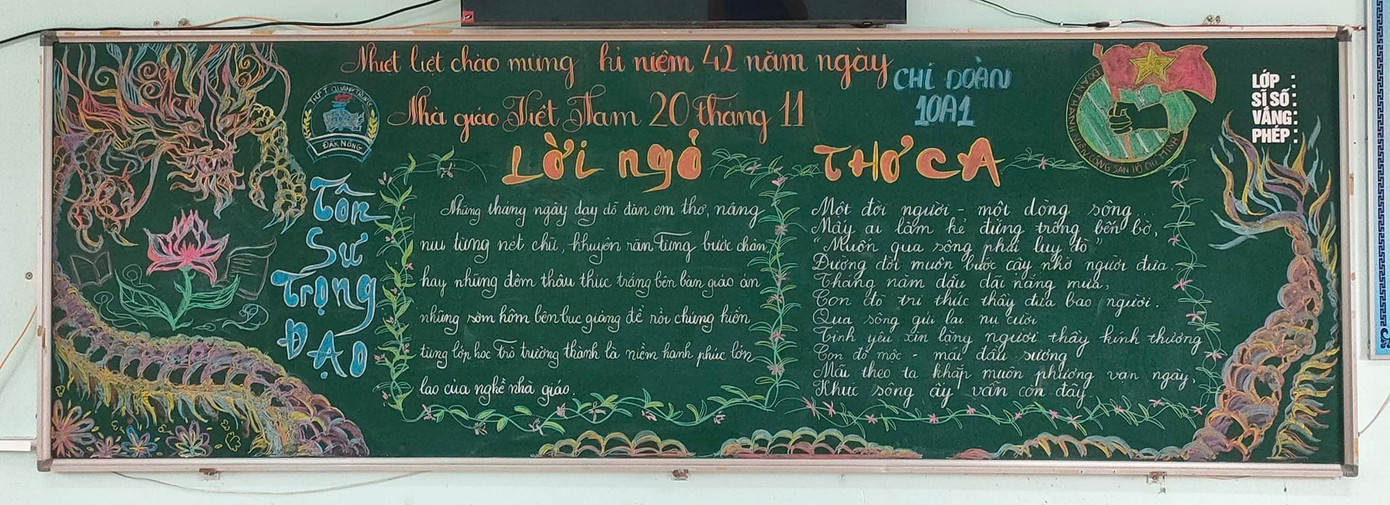 Nhiệt liệt chào mừng kỉ niệm 42 năm ngày
Nhà giáo Việt Nam 20 tháng 11
CHI ĐOÀN
10A1
LỚP :
SĨ SỐ :
VẮNG :
PHÉP :
THPT QUANG TRUNG
ĐĂK NÔNG
ĐOÀN THANH NIÊN CỘNG SẢN HỒ CHÍ MINH
Tôn
Sư
Trọng
ĐẠO
Lời ngỏ
Những tháng ngày dạy dỗ đàn em thơ, nâng
niu từng nét chữ, khuyên răn từng bước chân
hay những đêm thâu thức trắng bên bàn giáo án
những sớm hôm bên bục giảng để rồi chứng kiến
từng lớp học trò trưởng thành là niềm hạnh phúc lớn
lao của nghề nhà giáo.
THƠ CA
Một đời người - một dòng sông...
Mấy ai làm kẻ đứng trông bến bờ,
"Muốn qua sông phải luỵ đò"
Đường đời muôn bước cậy nhờ người đưa.
Tháng năm dầu dãi nắng mưa,
Con đò trí thức thầy đưa bao người.
Qua sông gửi lại nụ cười
Tình yêu xin tặng người thầy kính thương
Con đò mộc - mái đầu sương
Mãi theo ta khắp muôn phương vạn ngày,
Khúc sông ấy vẫn còn đây